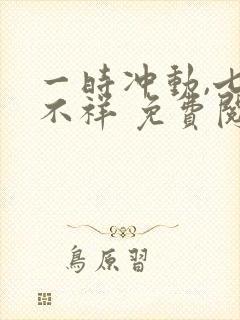 一時冲動,七
不祥 免費閱
鳥原習